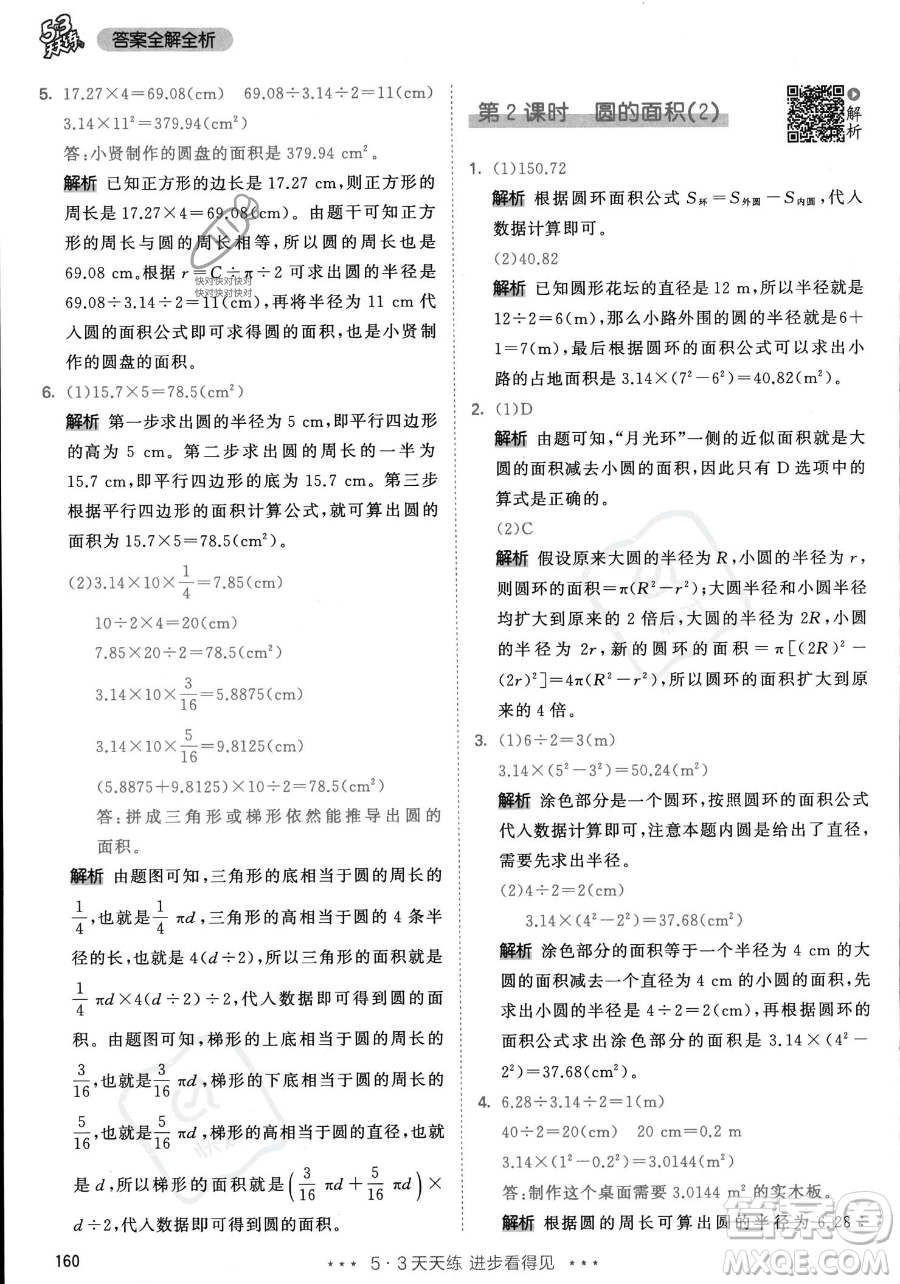 5·3
天天练
答案全解全析
5. 17.27×4=69.08(cm) 69.08÷3.14÷2=11(cm)
3.14×11²=379.94(cm²)
答:小贤制作的圆盘的面积是 379.94 cm²。
解析 已知正方形的边长是 17.27 cm,则周长
是 17.27×4=69.08(cm)。由题干可知正方
形的周长与圆的周长相等,所以圆的周长是
69.08 cm。根据 r=C÷π÷2 可求出圆的半径是
69.08÷3.14÷2=11(cm),再将半径为 11 cm 代
入圆的面积公式即可求得圆的面积,也是小贤制
作的圆盘的面积。
快对快对快对
快对快对快对
6. (1)15.7×5=78.5(cm²)
解析 第一步求出圆的半径为 5 cm,即平行四边形
的高为 5 cm。第二步求出圆的周长的一半为
15.7 cm,即平行四边形的底为 15.7 cm。第三步
根据平行四边形的面积计算公式,就可算出圆的
面积为 15.7×5=78.5(cm²)。
(2)3.14×10×1/4=7.85(cm)
10÷2×4=20(cm)
7.85×20÷2=78.5(cm²)
3.14×10×3/16=5.8875(cm)
3.14×10×5/16=9.8125(cm)
(5.8875+9.8125)×10÷2=78.5(cm²)
答:拼成三角形或梯形依然能推导出圆的
面积。
解析 由题图可知,三角形的底相当于圆的周长的
1/4,也就是 1/4 πd,三角形的高相当于圆的 4 条半
径的长,也就是 4(d÷2),所以三角形的面积就是
1/4 πd×4(d÷2)÷2,代入数据即可得到圆的面
积。由题图可知,梯形的上底相当于圆的周长的
3/16,也就是 3/16 πd,梯形的下底相当于圆的周长的
5/16,也就是 5/16 πd,梯形的高相当于圆的直径,也
就是 d,所以梯形的面积就是(3/16 πd+5/16 πd)×
d÷2,代入数据即可得到圆的面积。
第 2 课时 圆的面积(2)
解析
1. (1)150.72
解析 根据圆环面积公式 S环=S外圆−S内圆,代入
数据计算即可。
(2)40.82
解析 已知圆形花坛的直径是 12 m,所以半径是
12÷2=6(m),那么小路外围的圆的半径就是 6+
1=7(m)。根据圆环的面积公式可以求出小
路的占地面积是 3.14×(7²−6²)=40.82(m²)。
2. (1)D
解析 由题可知,“月光环”一侧的近似面积就是大
圆的面积减去小圆的面积,因此只有 D 选项中的
算式是正确的。
(2)C
解析 假设原来大圆的半径为 R,小圆的半径为 r,
则圆环的面积=π(R²−r²);大小圆的半径
均扩大到原来的 2 倍后,大圆的半径为 2R,小圆
的半径为 2r,新的圆环的面积=π[(2R)²−
(2r)²]=4π(R²−r²),所以圆环的面积扩大到原
来的 4 倍。
3. (1)6÷2=3(m)
3.14×(5²−3²)=50.24(m²)
解析 涂色部分是一个圆环,按照圆环的面积公式
代入数据计算即可,注意本题内圆给出了直径,
需要先求出半径。
(2)4÷2=2(cm)
3.14×(4²−2²)=37.68(cm²)
解析 涂色部分的面积等于一个半径为 4 cm 的大
圆的面积减去一个直径为 4 cm 的小圆的面积,先
求出小圆的半径是 4÷2=2(cm),再根据圆环的
面积公式求出涂色部分的面积是 3.14×(4²−
2²)=37.68(cm²)。
4. 6.28÷3.14÷2=1(m)
40÷2=20(cm) 20 cm=0.2 m
3.14×(1²−0.2²)=3.0144(m²)
答:制作这个桌面需要 3.0144 m² 的实木板。
解析 根据圆的周长可算出圆的半径为 6.28÷
160
*** 5·3 天天练 进步看得见 ***
作业精灵
MXQE.COM